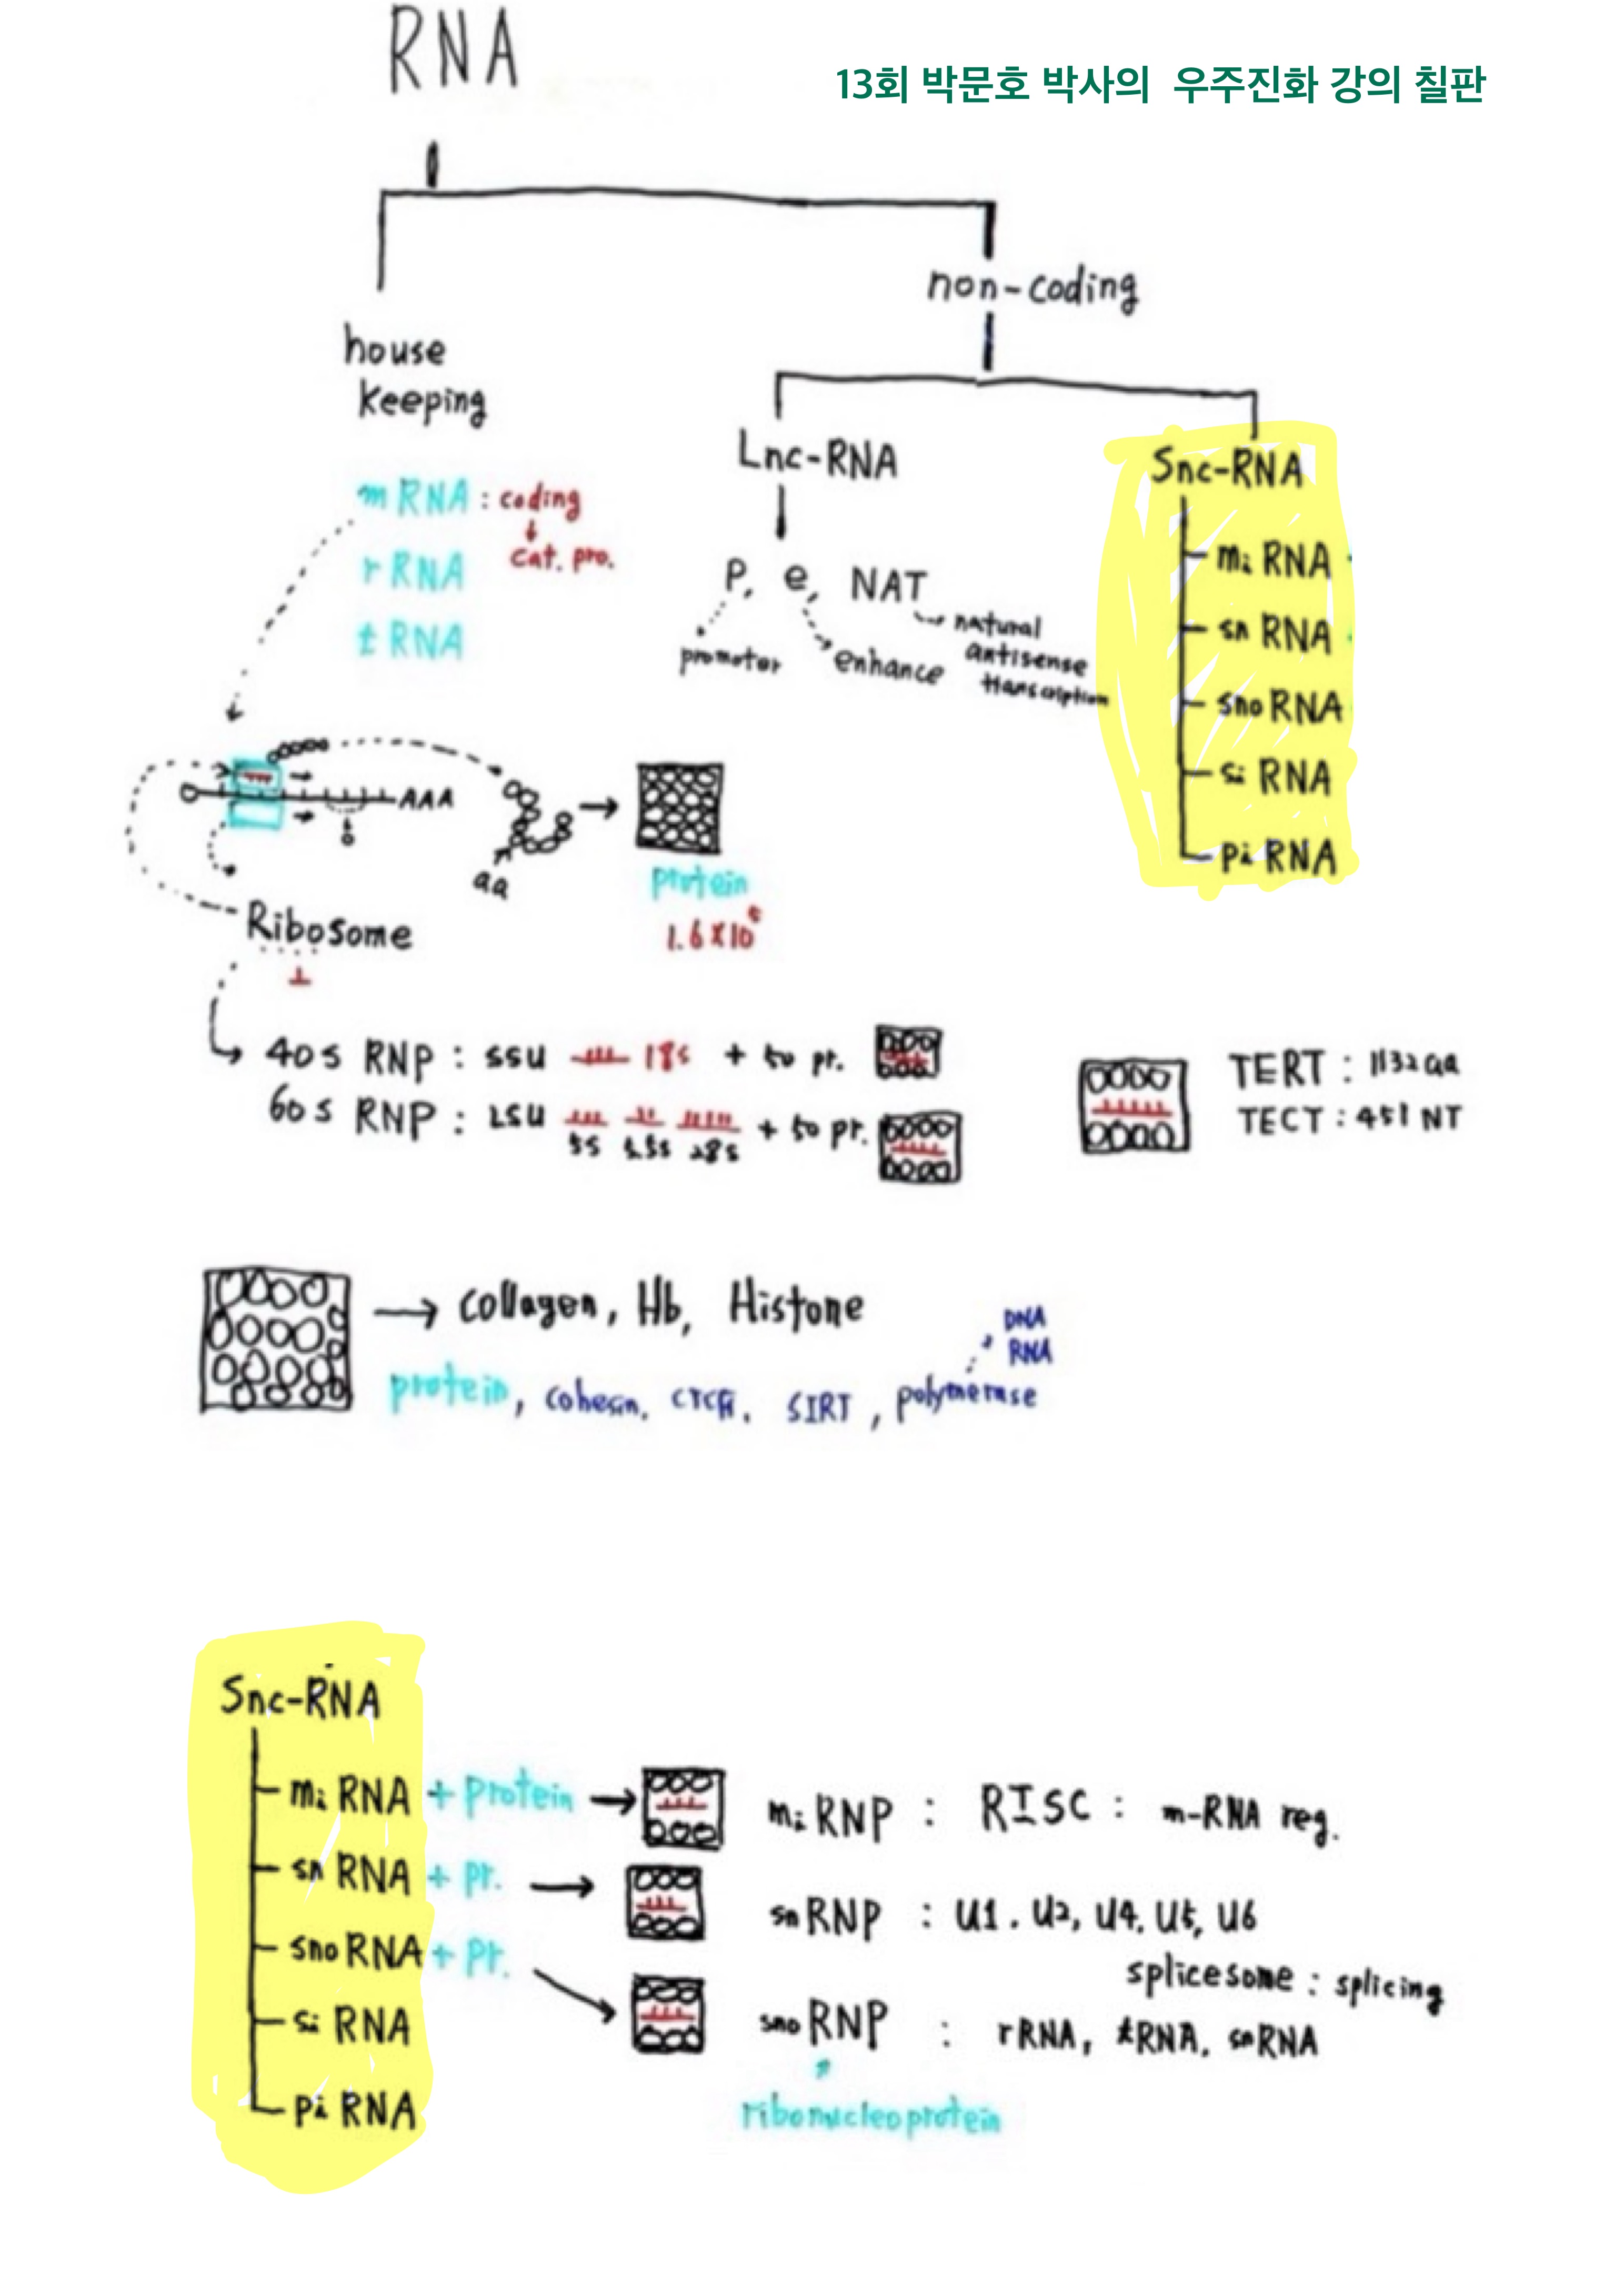 RNA
13회 박문호 박사의 우주진화 강의 칠판
non-coding
house
keeping
mRNA : coding
cat. pro.
rRNA
tRNA
Lnc-RNA
P, e, NAT
promotor
enhance
natural
antisense
transcription
Snc-RNA
mi RNA
sn RNA
sno RNA
si RNA
pi RNA
AAA
aa
protein
1.6 x 10
Ribosome
40s RNP : SSU 18s + 50 pr.
60s RNP : LSU + 50 pr.
5s 5.5s 28s
TERT : 1132 aa
TECT : 451 NT
collagen, Hb, Histone
DNA
RNA
protein, cohesin, SIRT, polymerase
Snc-RNA
mi RNA + protein
mi RNP : RISC : m-RNA reg.
sn RNA + pr.
sn RNP : U1, U2, U4, U5, U6
splicesome : splicing
sno RNA + pr.
sno RNP : rRNA, tRNA, snRNA
ribonucleoprotein
si RNA
pi RNA